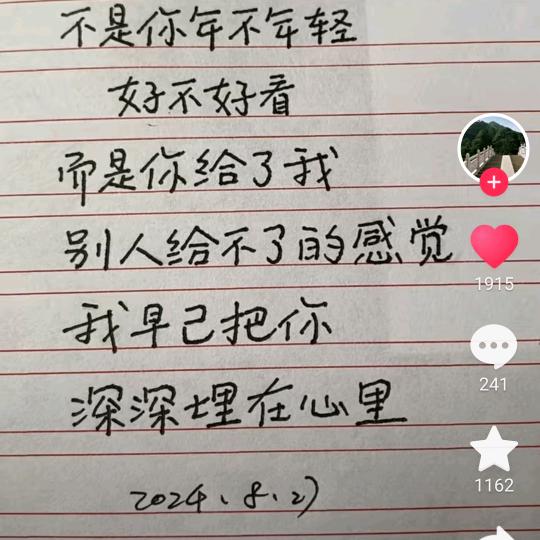 不是你年不年轻
好不好看
而是你给了我
别人给不了的感觉
我早已把你
深深埋在心里
2024、8、27
1915
241
1162